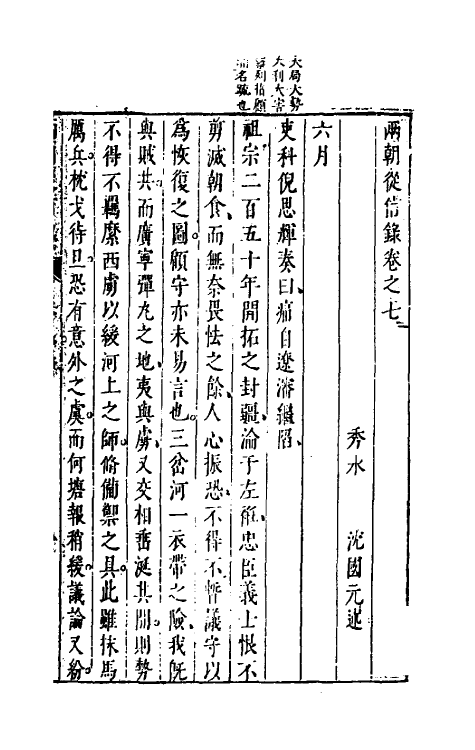 兩朝從信錄卷之七
秀水 沈國元述
六月
吏科倪思輝奏曰痛自遼瀋繼陷
祖宗二百五十年開拓之封疆淪于左衽忠臣義士恨不
剪滅朝食而無奈畏怯之餘人心振恐不得不暫議守以
為恢復之圖顧守亦未易言也三岔河一衣帶之險我旣
與賊共而廣寧彈丸之地夷與虜又交相垂涎其間則勢
不得不羈縻西虜以緩河上之師脩備禦之具此雖抹馬
厲兵枕戈待旦恐有意外之虞而何塘報稍緩議論又紛
大局大勢
大利大害
指顧
名疏也